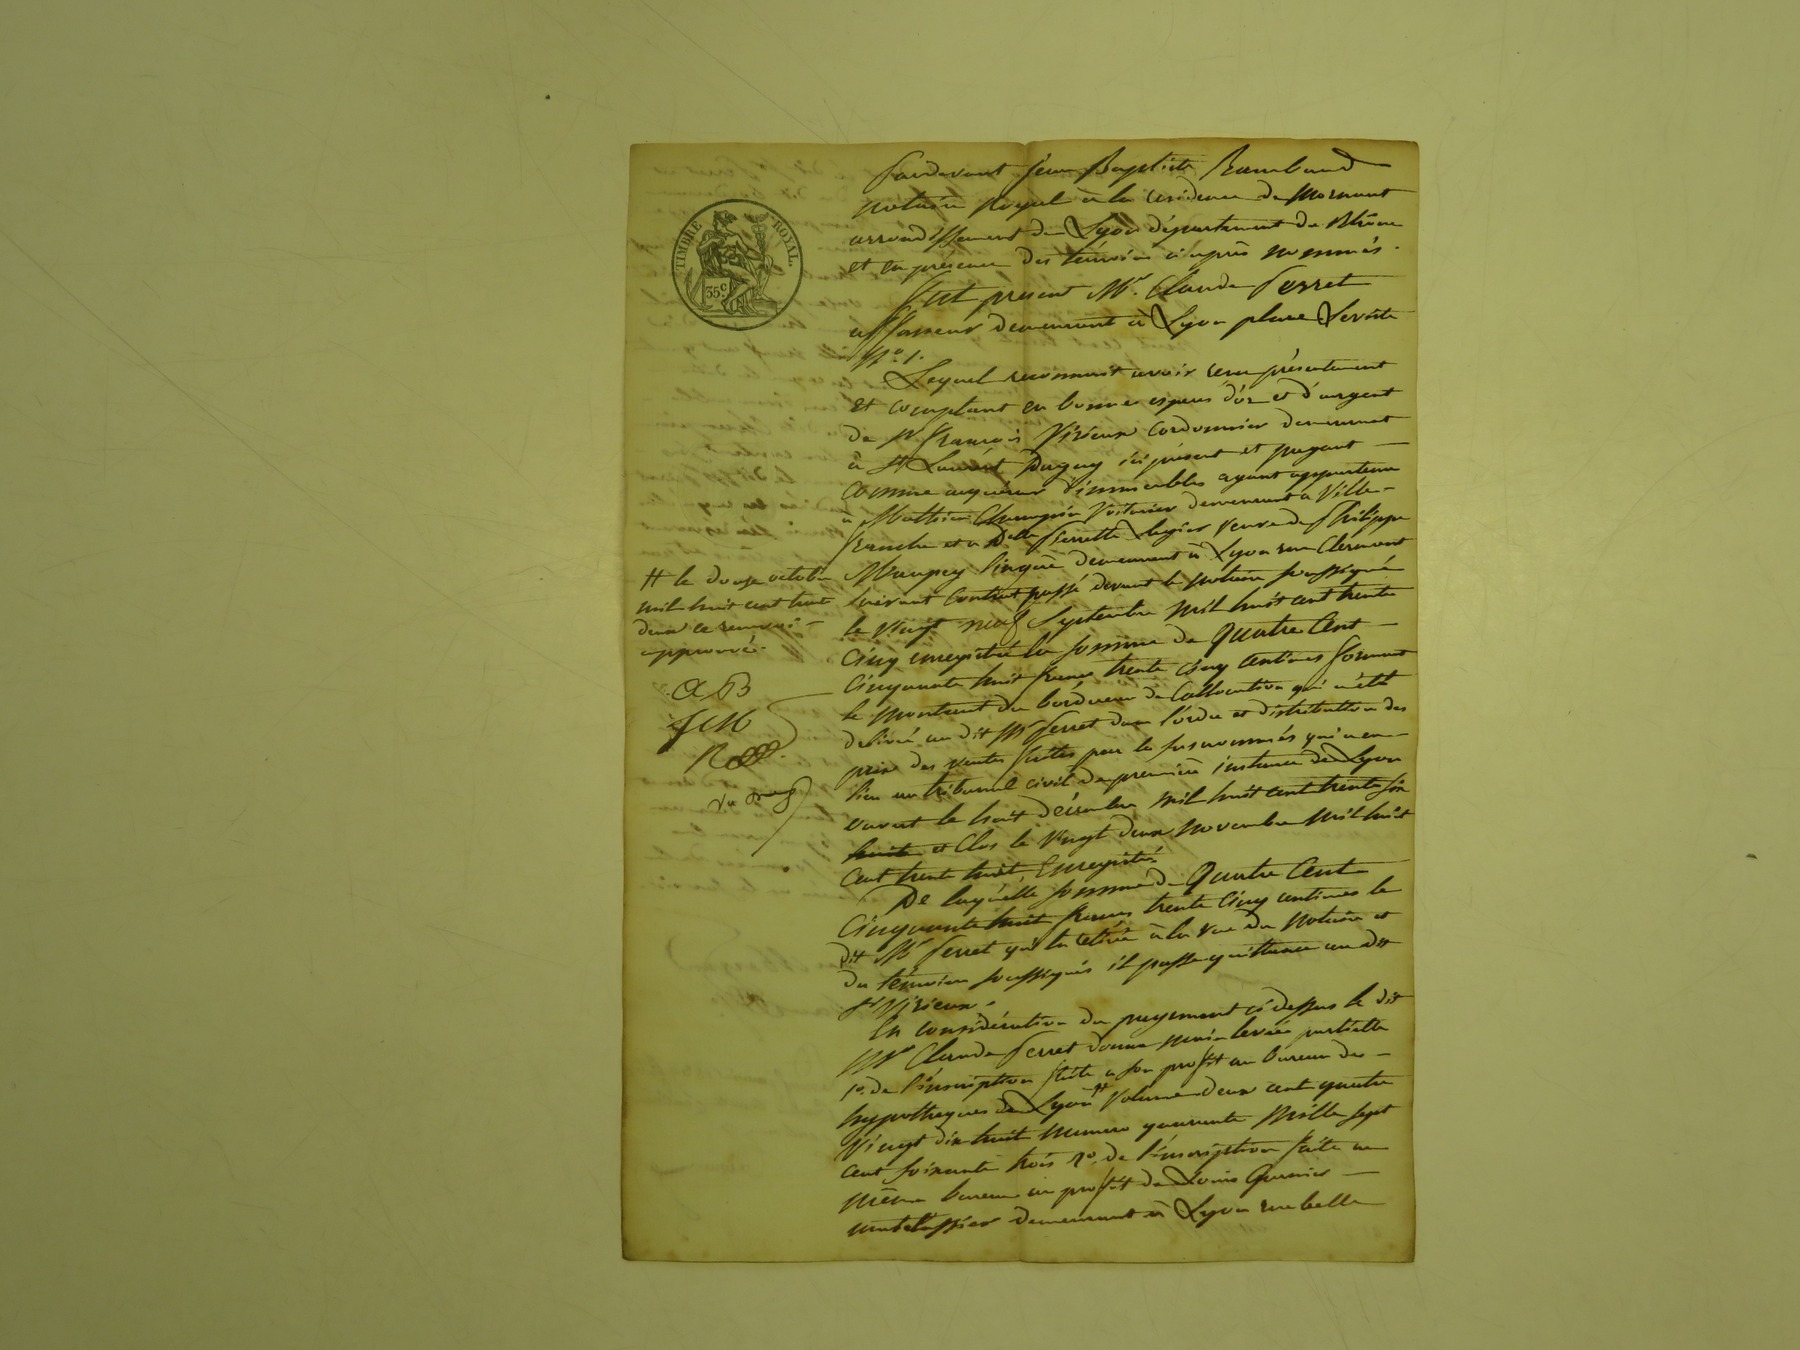 TIMBRE ROYAL.
35c
Pardevant Jean Baptiste Rambaud
notaire Royal à la résidence de Mornant
arrondissement de Lyon département du Rhône
et en présence des témoins ci après nommés.
Fut présent Mr. Claude Perret
demeurant à Lyon place
No. 1.
Lequel reconnait avoir reçu présentement
et comptant en bonnes espèces d'or et d'argent
de sr François Virieux Cordonnier demeurant
à St Laurent Dagny ici présent et payant
comme acquéreur d'immeubles ayant appartenu
à Mathieu Voiturier demeurant à Ville-
franche et à Dlle Pierrette veuve de Philippe
demeurant à Lyon rue Clermont
suivant Contrat passé devant le notaire soussigné
le vingt neuf Septembre mil huit cent trente
cinq enregistré la somme de quatre Cent
Cinquante huit francs trente cinq Centimes formant
le montant du bordereau de Collocation qui a été
délivré au dit Mr Perret dans l'ordre et distribution des
prix des ventes faites par les susnommés qui a eu
lieu au tribunal civil de première instance de Lyon
ouvert le huit décembre mil huit cent trente six
et Clos le Vingt deux novembre mil huit
Cent trente huit Enregistré.
De laquelle somme de Quatre Cent
Cinquante huit francs trente Cinq centimes le
dit Mr Perret qui l'a retirée à la vue du Notaire et
des témoins soussignés il passe quittance au dit
sr Virieux.
En considération du payement ci dessus le dit
Mr Claude Perret donne main levée partielle
1o. de l'inscription faite à son profit au bureau des
hypothèques de Lyon # Volume deux cent quatre
Vingt dix huit numéro quarante mille sept
cent soixante trois 2o. de l'inscription faite au
même bureau au profit de Louis
matelassier demeurant à Lyon rue belle
# le douze octobre
mil huit cent trente
deux ce renvoi
approuvé.